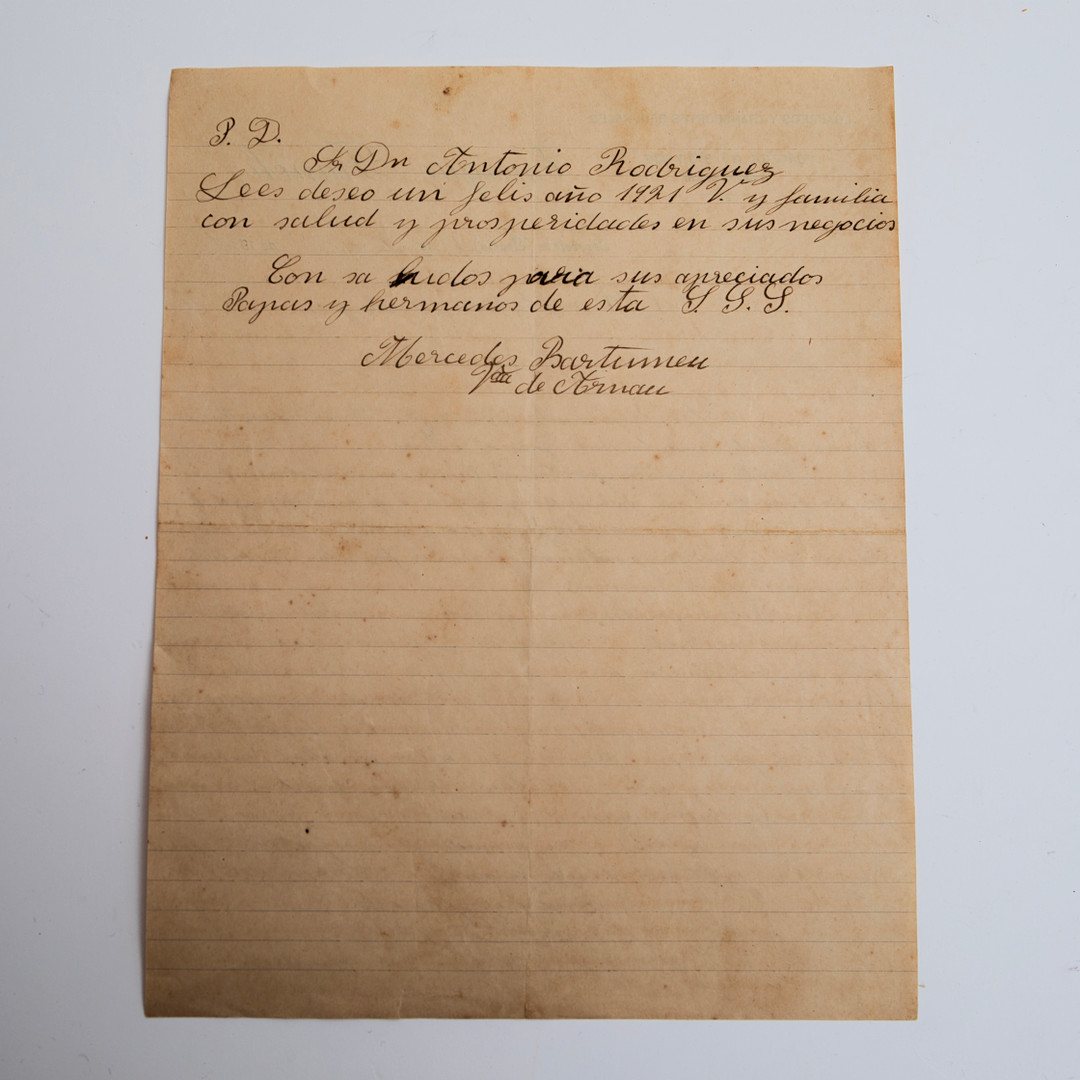 P. D.
Sr Dn Antonio Rodriguez
Lees deseo un felis año 1921 V. y familia
con salud y prosperidades en sus negocios
Con sa ludos para sus apreciados
Papas y hermanos de esta S. S. S.
Mercedes Bartumeu
Vda de Arnau